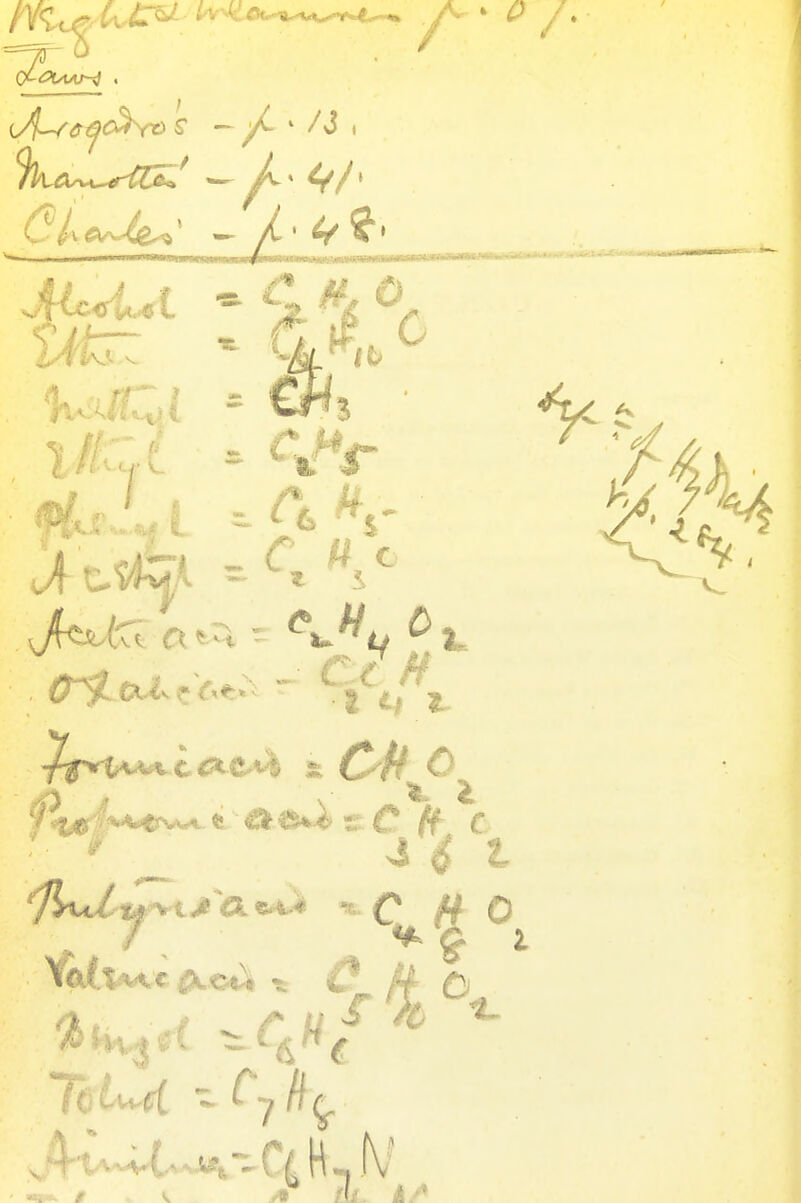 Weights & Measures p. 07.
Laws.
Avogadro's - p. 13.
Marriotte's - p. 41.
Charles' - p. 48.
Alcohol = C2 H6 O
Ether = C4 H10 O
Methyl = CH3
Ethyl = C2H5
Phenyl = C6 H5
Acetyl = C2 H3 O
Acetic acid = C2 H4 O2
Oxalic acid = C2 O4 H2
Formic acid = CH2 O2
Propionic acid = C3 H6 O2
Butyric acid = C4 H8 O2
Valeric acid = C5 H10 O2
Benzol = C6 H6
Toluol = C7 H8
Aniline = C6 H7 N
p. 284.